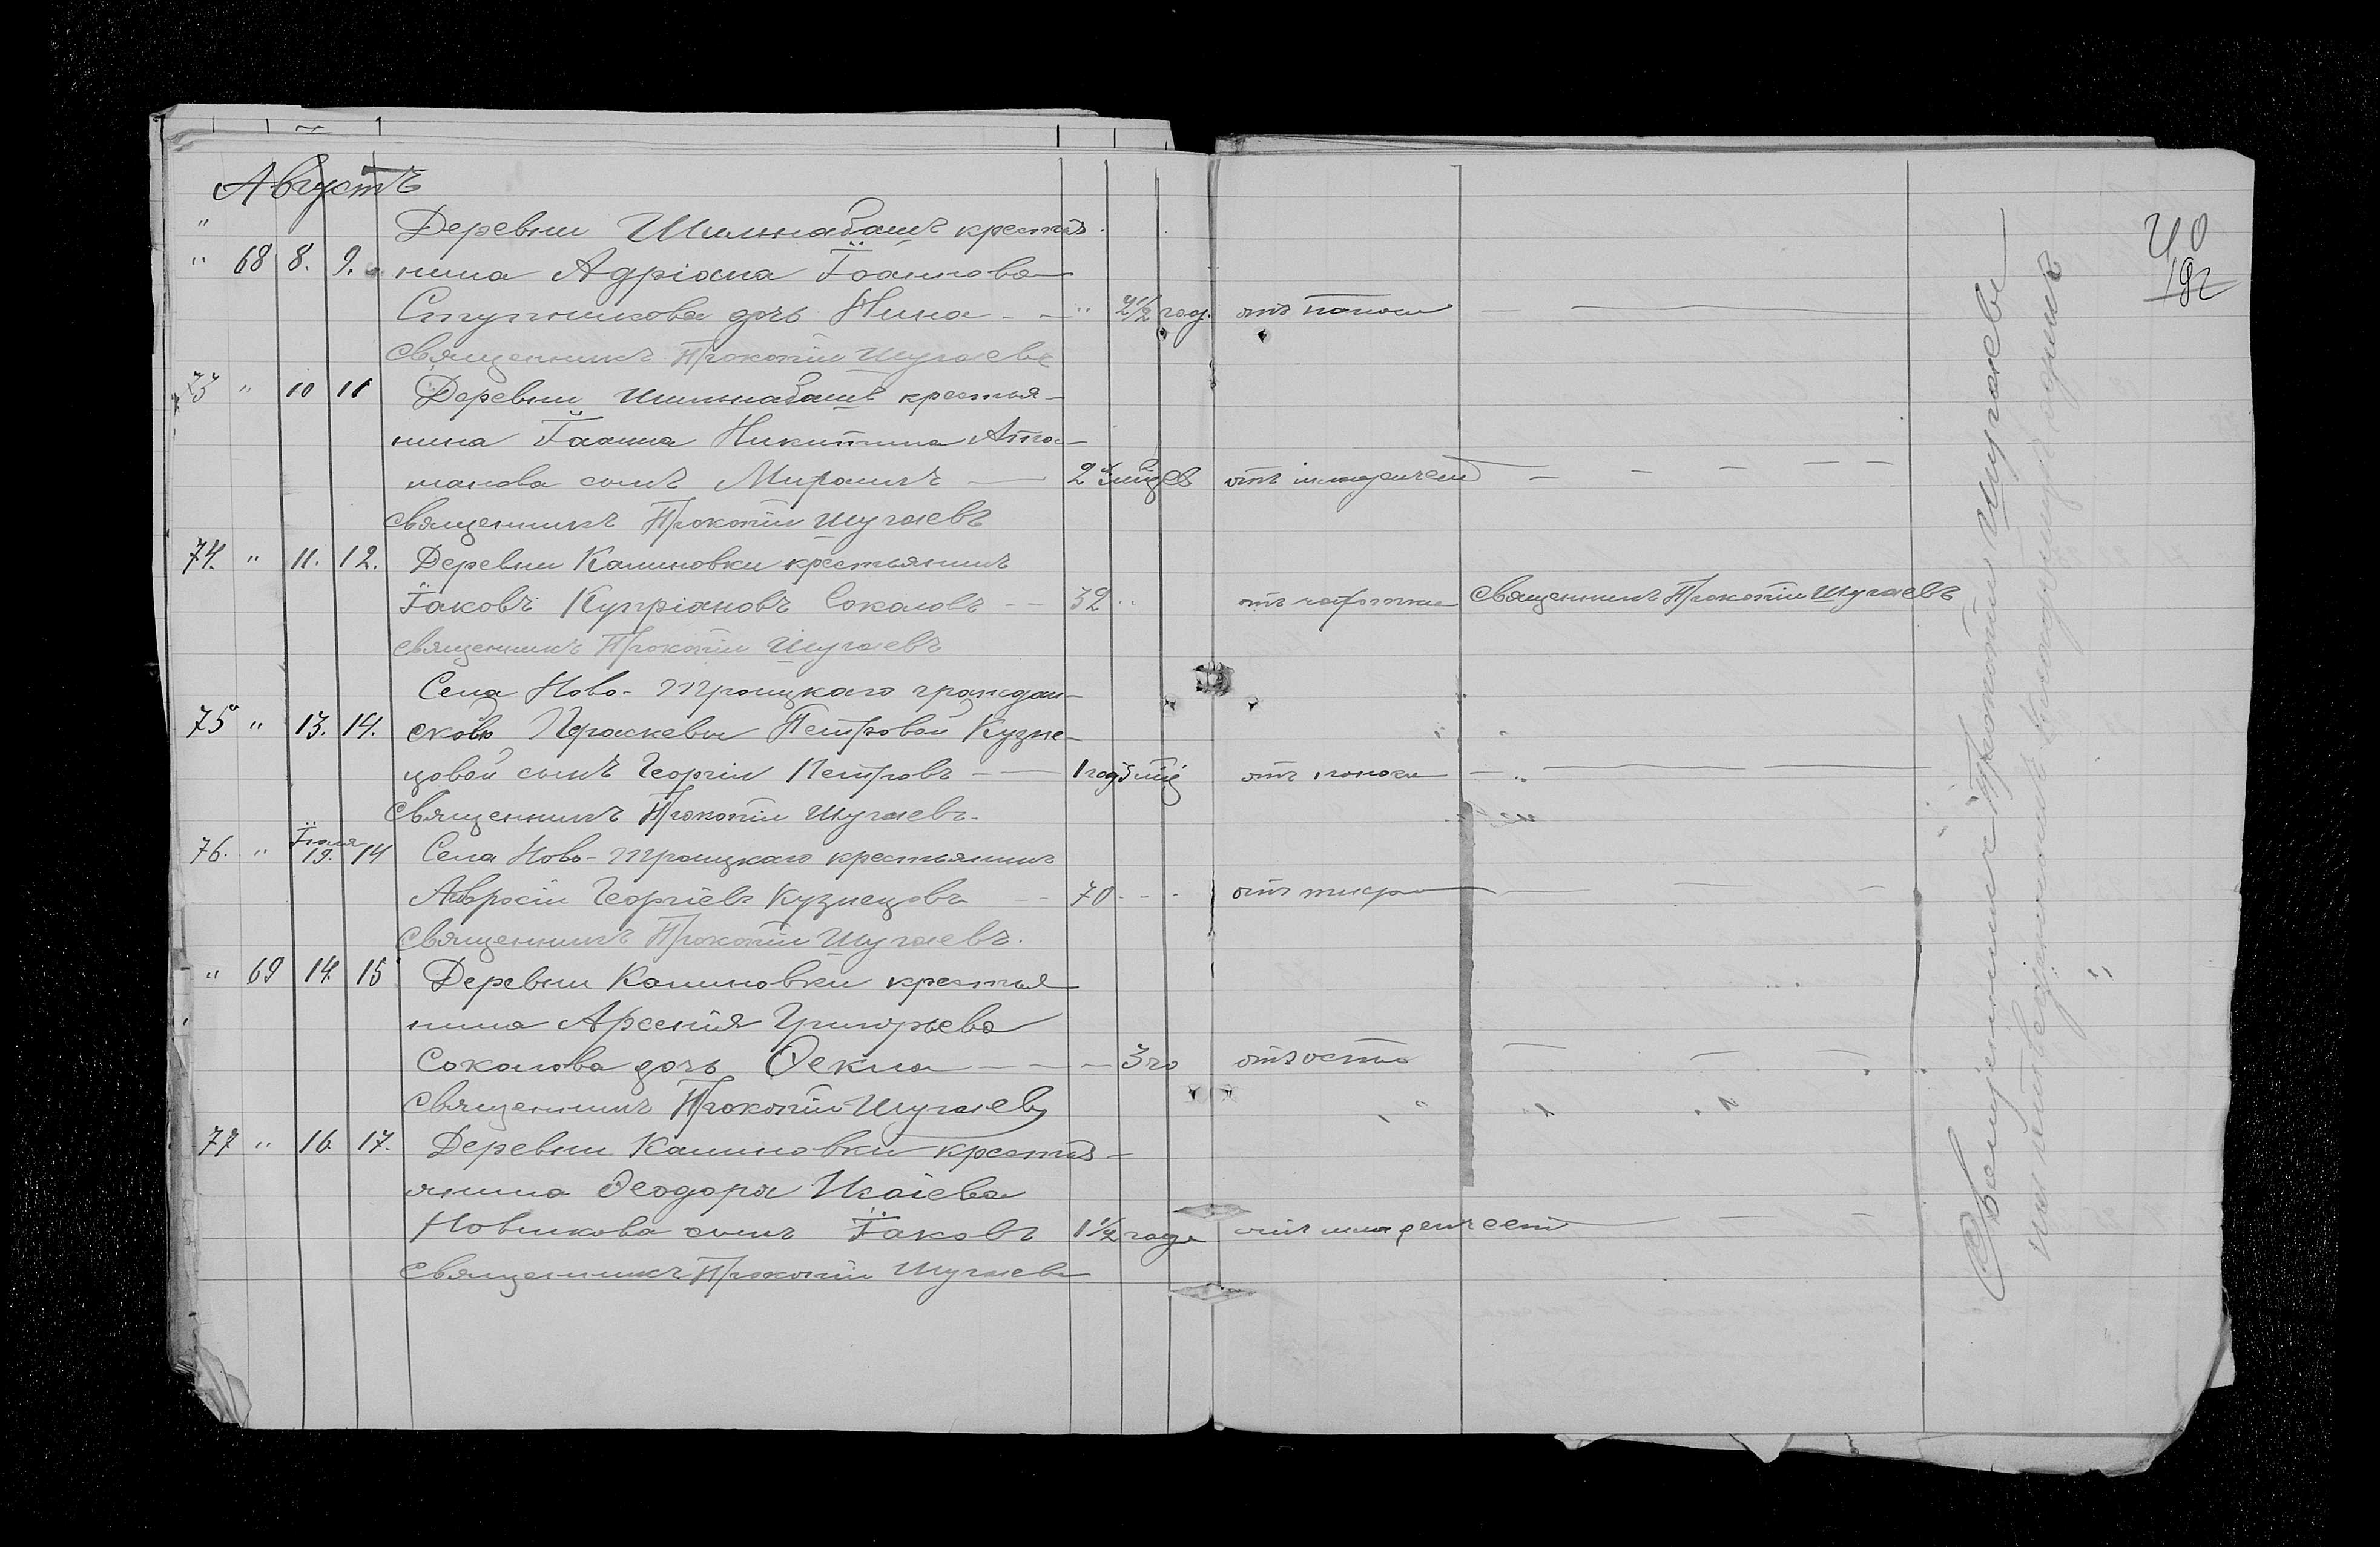 Августъ
40
192
" Деревни Шильнабашъ крестья-
" 68 8. 9. нина Адріана Іоаннова
Ступникова дочь Нина - - " 2 1/2 год. отъ поноса
Священникъ Прокопій Шугаевъ
73 " 10 11 Деревни Шильнабашъ крестья-
нина Іоанна Никитина Ата-
манова сынъ Миронъ — 2 отъ младенчест
Священникъ Прокопій Шугаевъ
74. " 11. 12. Деревни Калиновки крестьянинъ
Іаковъ Купріановъ Соколовъ - - 32 " отъ чахотки Священникъ Прокопій Шугаевъ
Священникъ Прокопій Шугаевъ
Села Ново-Троицкаго граждан-
75 " 13. 14. Параскевы Петровой Кузне-
цовой сынъ Георгій Петровъ - — 1 год отъ поноса — "
Священникъ Прокопій Шугаевъ.
76. " Іюля 19. 14 Села Ново-Троицкаго крестьянинъ
Амвросій Георгіевъ Кузнецовъ - - 70 - - отъ тифа
Священникъ Прокопій Шугаевъ.
" 69 14. 15 Деревни Калиновки крестья
нина Арсенія Григорьева
Соколова дочь Ѳекла - — - 3 го отъ оспы
Священникъ Прокопій Шугаевъ
77 " 16. 17. Деревни Калиновки крестья-
янина Ѳеодора Исаіева
Новикова сынъ Іаковъ 1 1/2 года отъ младенчест
Священникъ Прокопій Шугаевъ
Священникъ Прокопій Шугаевъ